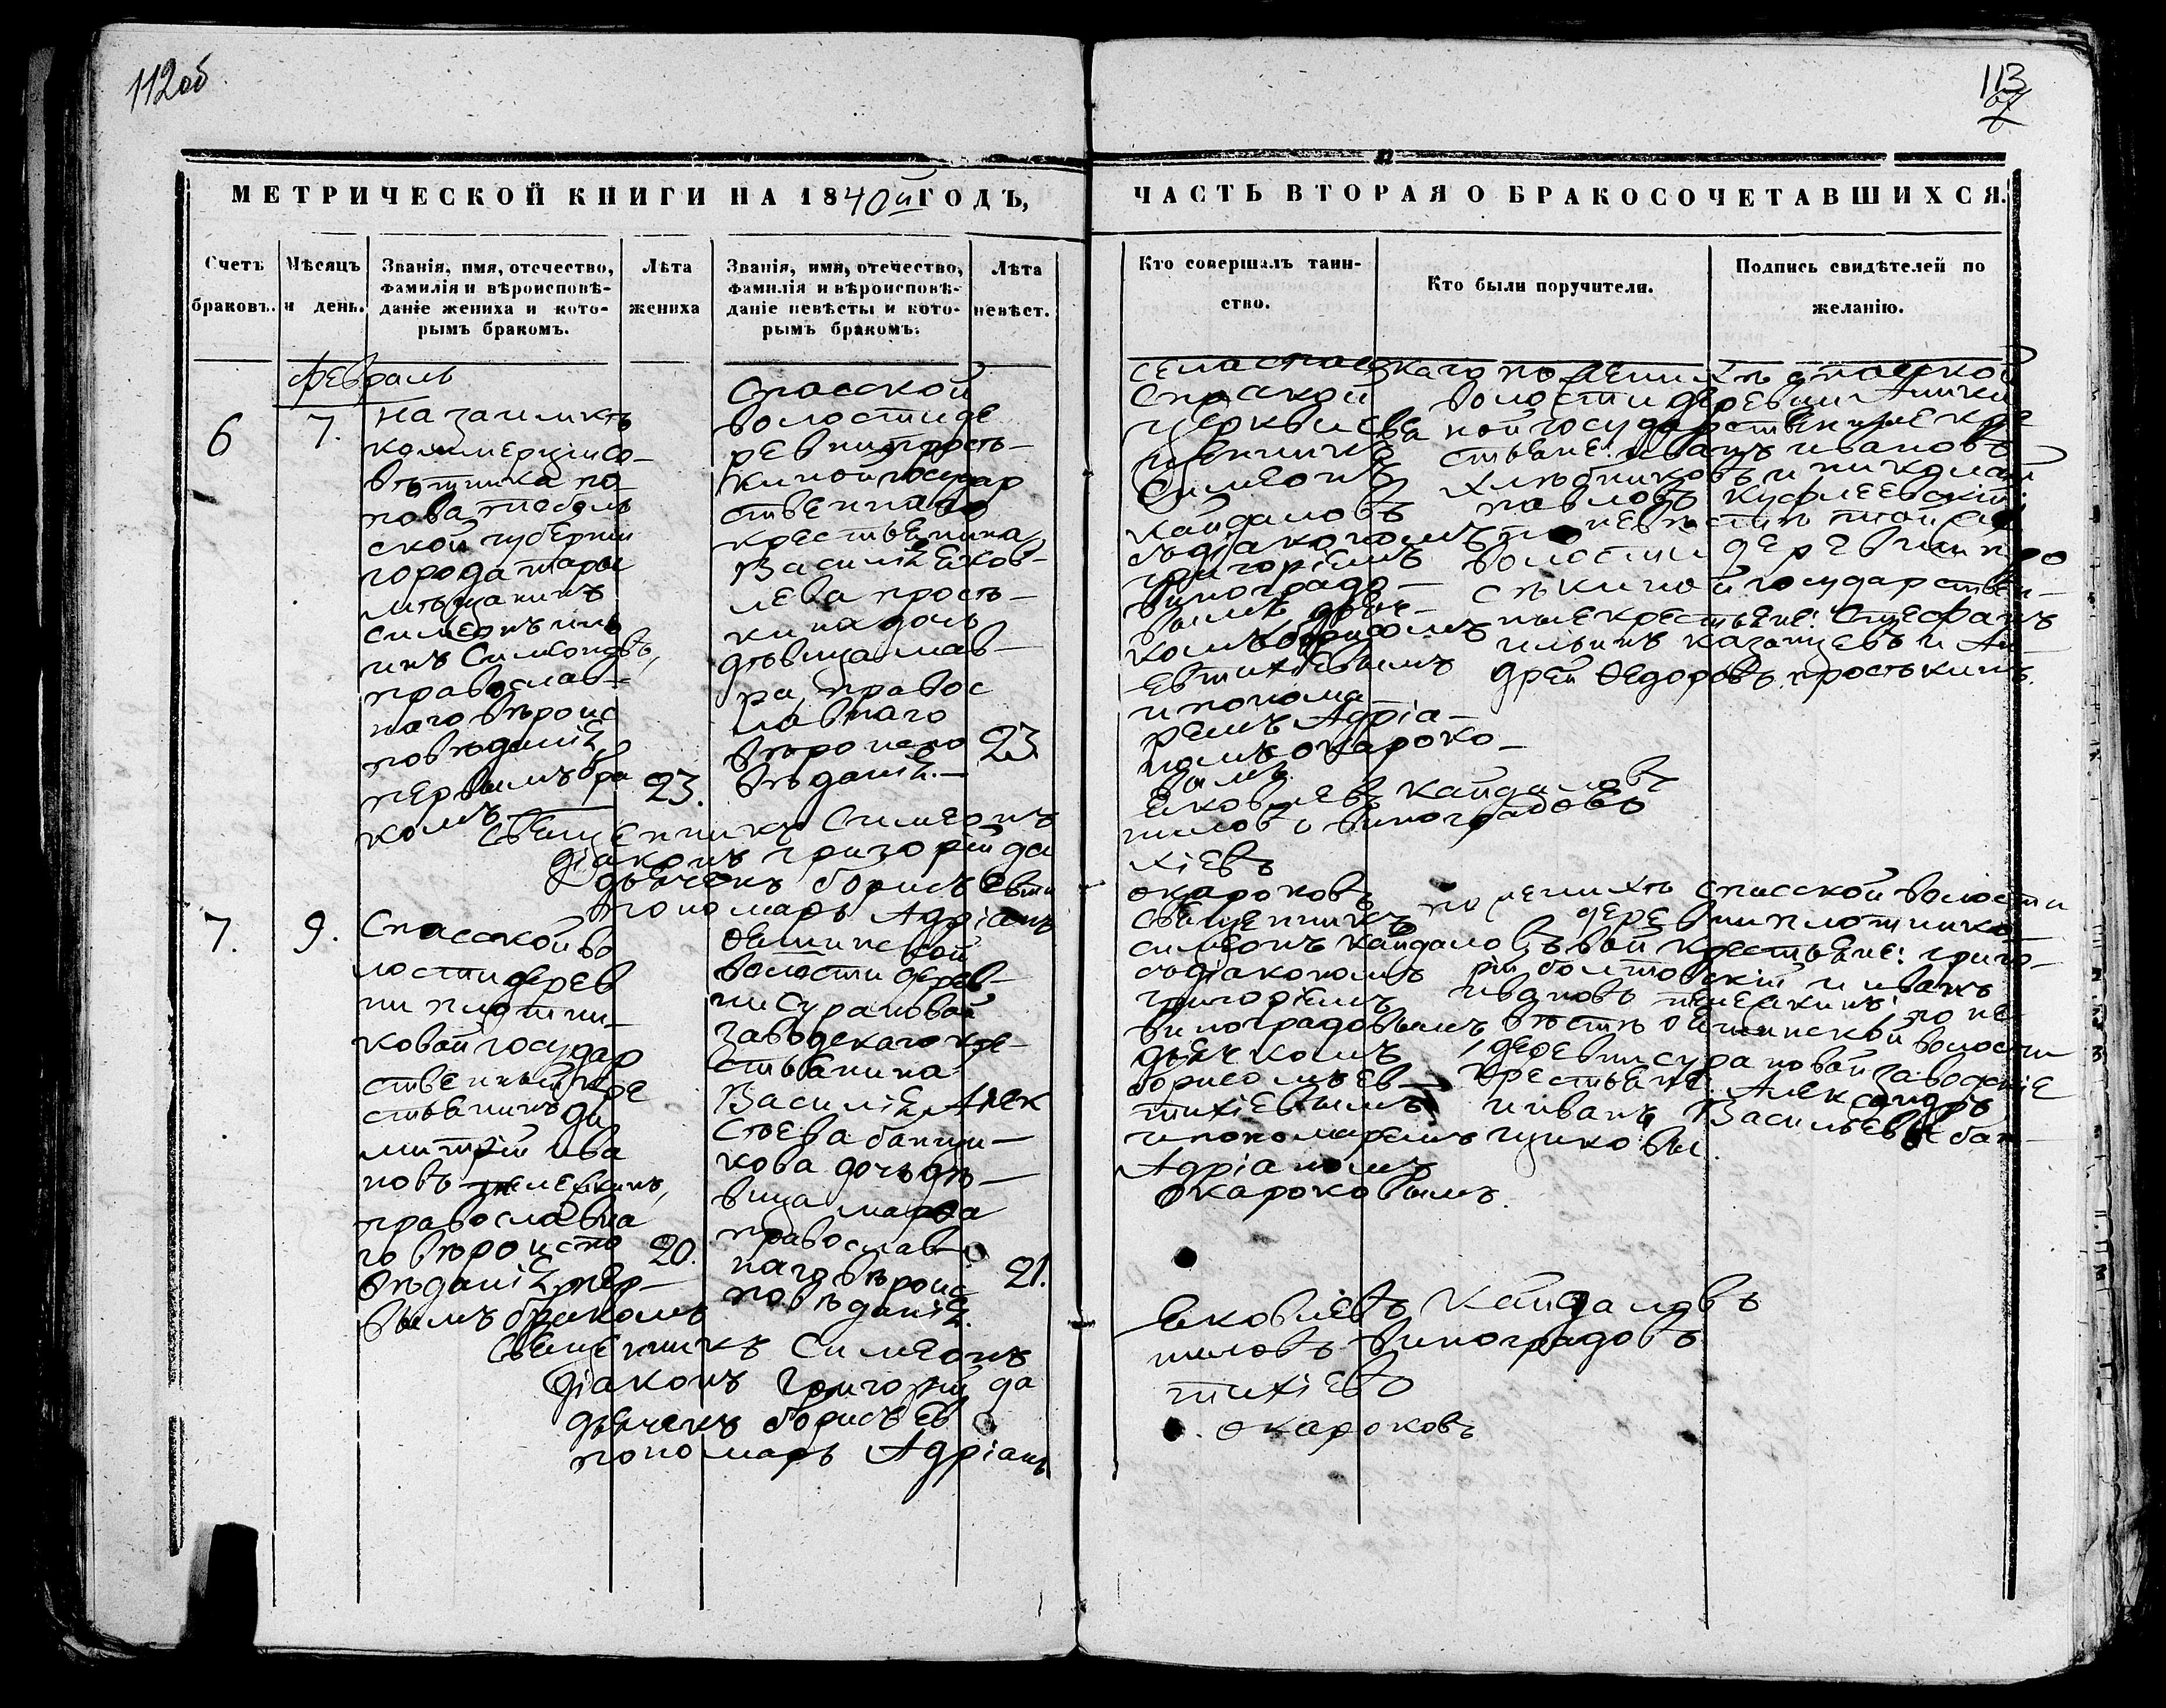 112об
113
МЕТРИЧЕСКОЙ КНИГИ НА 1840й ГОДЪ,
ЧАСТЬ ВТОРАЯ О БРАКОСОЧЕТАВШИХСЯ.
Счетъ браковъ.
Мѣсяцъ и день.
Званія, имя, отечество,
фамилія и вѣроисповѣ-
даніе жениха и кото-
рымъ бракомъ.
Лѣта
жениха
Званія, имя, отечество,
фамилія и вѣроисповѣ-
даніе невѣсты и кото-
рымъ бракомъ.
Лѣта
невѣст.
Кто совершалъ таин-
ство.
Кто были поручители.
Подпись свидѣтелей по
желанію.
февраль
6
7.
на заимкѣ
коммерціи со-
вѣтника по-
пова тоболь
ской губерніи
города тары
мѣщанинъ
симеонъ
инъ Симеоновъ,
православ-
наго вѣроис
повѣданія
первымъ бра
комъ
23.
Спасской
волости де
ревни прость-
киной государ
ственнаго
крестьянина
Василія Яков-
лева прость-
кина дочь
дѣвица мав-
ра, правос
лавнаго
вѣроиспо
вѣданія.
23
села спасскаго
Спасской
церкви свя
щенникъ
Симеонъ
Кайдаловъ
съ діакономъ
григоріемъ
виноградо-
вымъ дьяч-
комъ борисомъ
евтихіевымъ
и понома-
ремъ Адріа-
номъ окароко-
вымъ.
по женихѣ спасской
волости деревни Аички
ной государственные кре
стьяне: иванъ ивановъ
хлѣбниковъ и николай
павловъ
по невѣстѣ той же
волости деревни про
стькиной государствен-
ные крестьяне: Стефанъ
ильинъ казанцевъ и Ан-
дрей Ѳедоровъ простькинъ.
Священникъ Симеонъ Яковлевъ Кайдаловъ
діаконъ григорій даниловъ виноградовъ
дьячекъ борисъ Евтихіевъ
пономарь Адріанъ окароковъ
7.
9.
Спасской во
лости дерев
ни плотни-
ковой государ
ственный кре
стьянинъ ди
митрій ива
новъ
православна
го вѣроиспо
вѣданія, пер-
вымъ бракомъ
20.
волости дерев-
ни Сурановой
заводскаго кре-
стьянина
Василія Алек
сѣева банщи-
кова дочь дѣ-
вица марѳа
православ-
наго вѣроис
повѣданія.
21.
священникъ
симеонъ кайдаловъ
съ діакономъ
григоріемъ
виноградовымъ
дьячкомъ
борисомъ ев-
тихіевымъ
и пономаремъ
Адріаномъ
окароковымъ.
по женихѣ спасской волости
деревни плотнико
вой крестьяне: григо-
рій болтовскій и иванъ
ивановъ по не-
вѣстѣ волости
деревни сурановой заводскіе
крестьяне: Александръ
и иванъ Васильевы бан-
щиковы.
Священникъ Симеонъ Яковлевъ Кайдаловъ
діаконъ Григорій даниловъ виноградовъ
дьячекъ борисъ Евтихіевъ
пономарь Адріанъ окароковъ